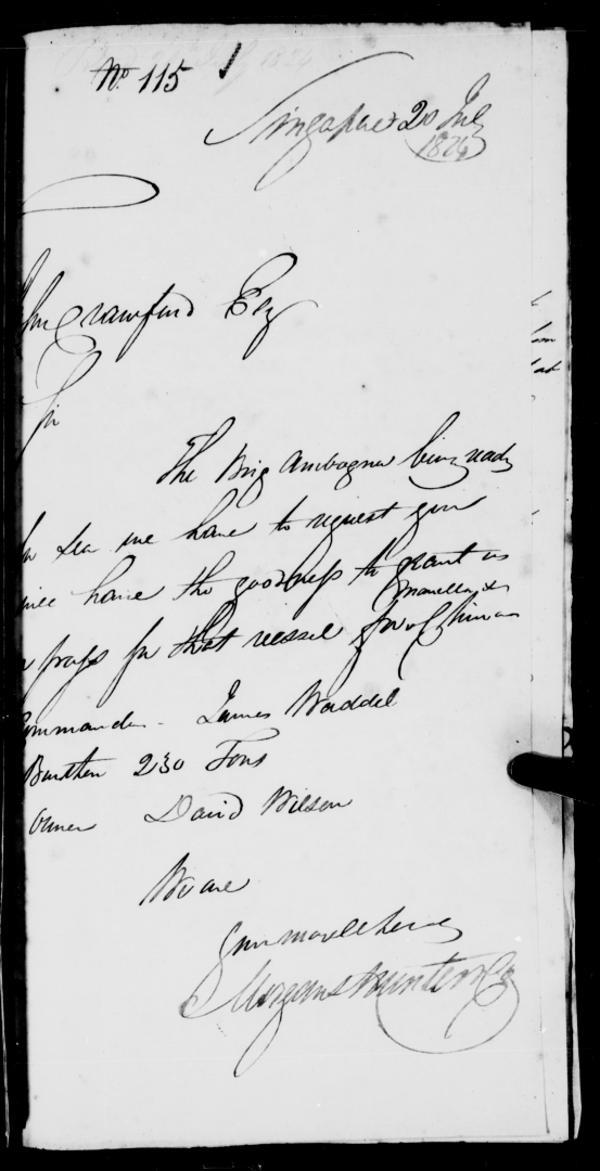 No. 115
Singapore 20 July
1824
John Crawfurd Esq
Sir
The Brig Amboyna being ready
for Sea we have to request you
will have the goodness to grant us
Manilla &
a pass for that vessel for China
Commander - James Waddel
Burthen 230 Tons
Owner David Wilson
We are
Your most obed Serv
Morgans Hunter & Co